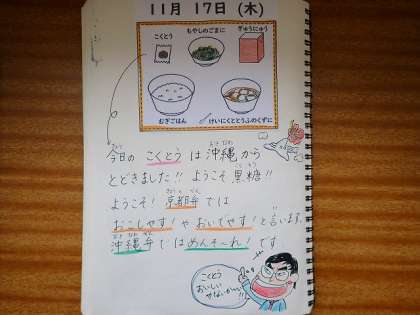 11月 17日 (木)
こくとう
もやしのごまに
ぎゅうにゅう
むぎごはん
けいにくととうふのくずに
今日の こくとう は 沖縄から
とどきました!! ようこそ 黒糖!!
ようこそ! 京都弁 では
おこしやす! や おいでやす! と言います。
沖縄弁 では めんそ〜れ! です。
こくとう
おいしい
やないか〜い!!